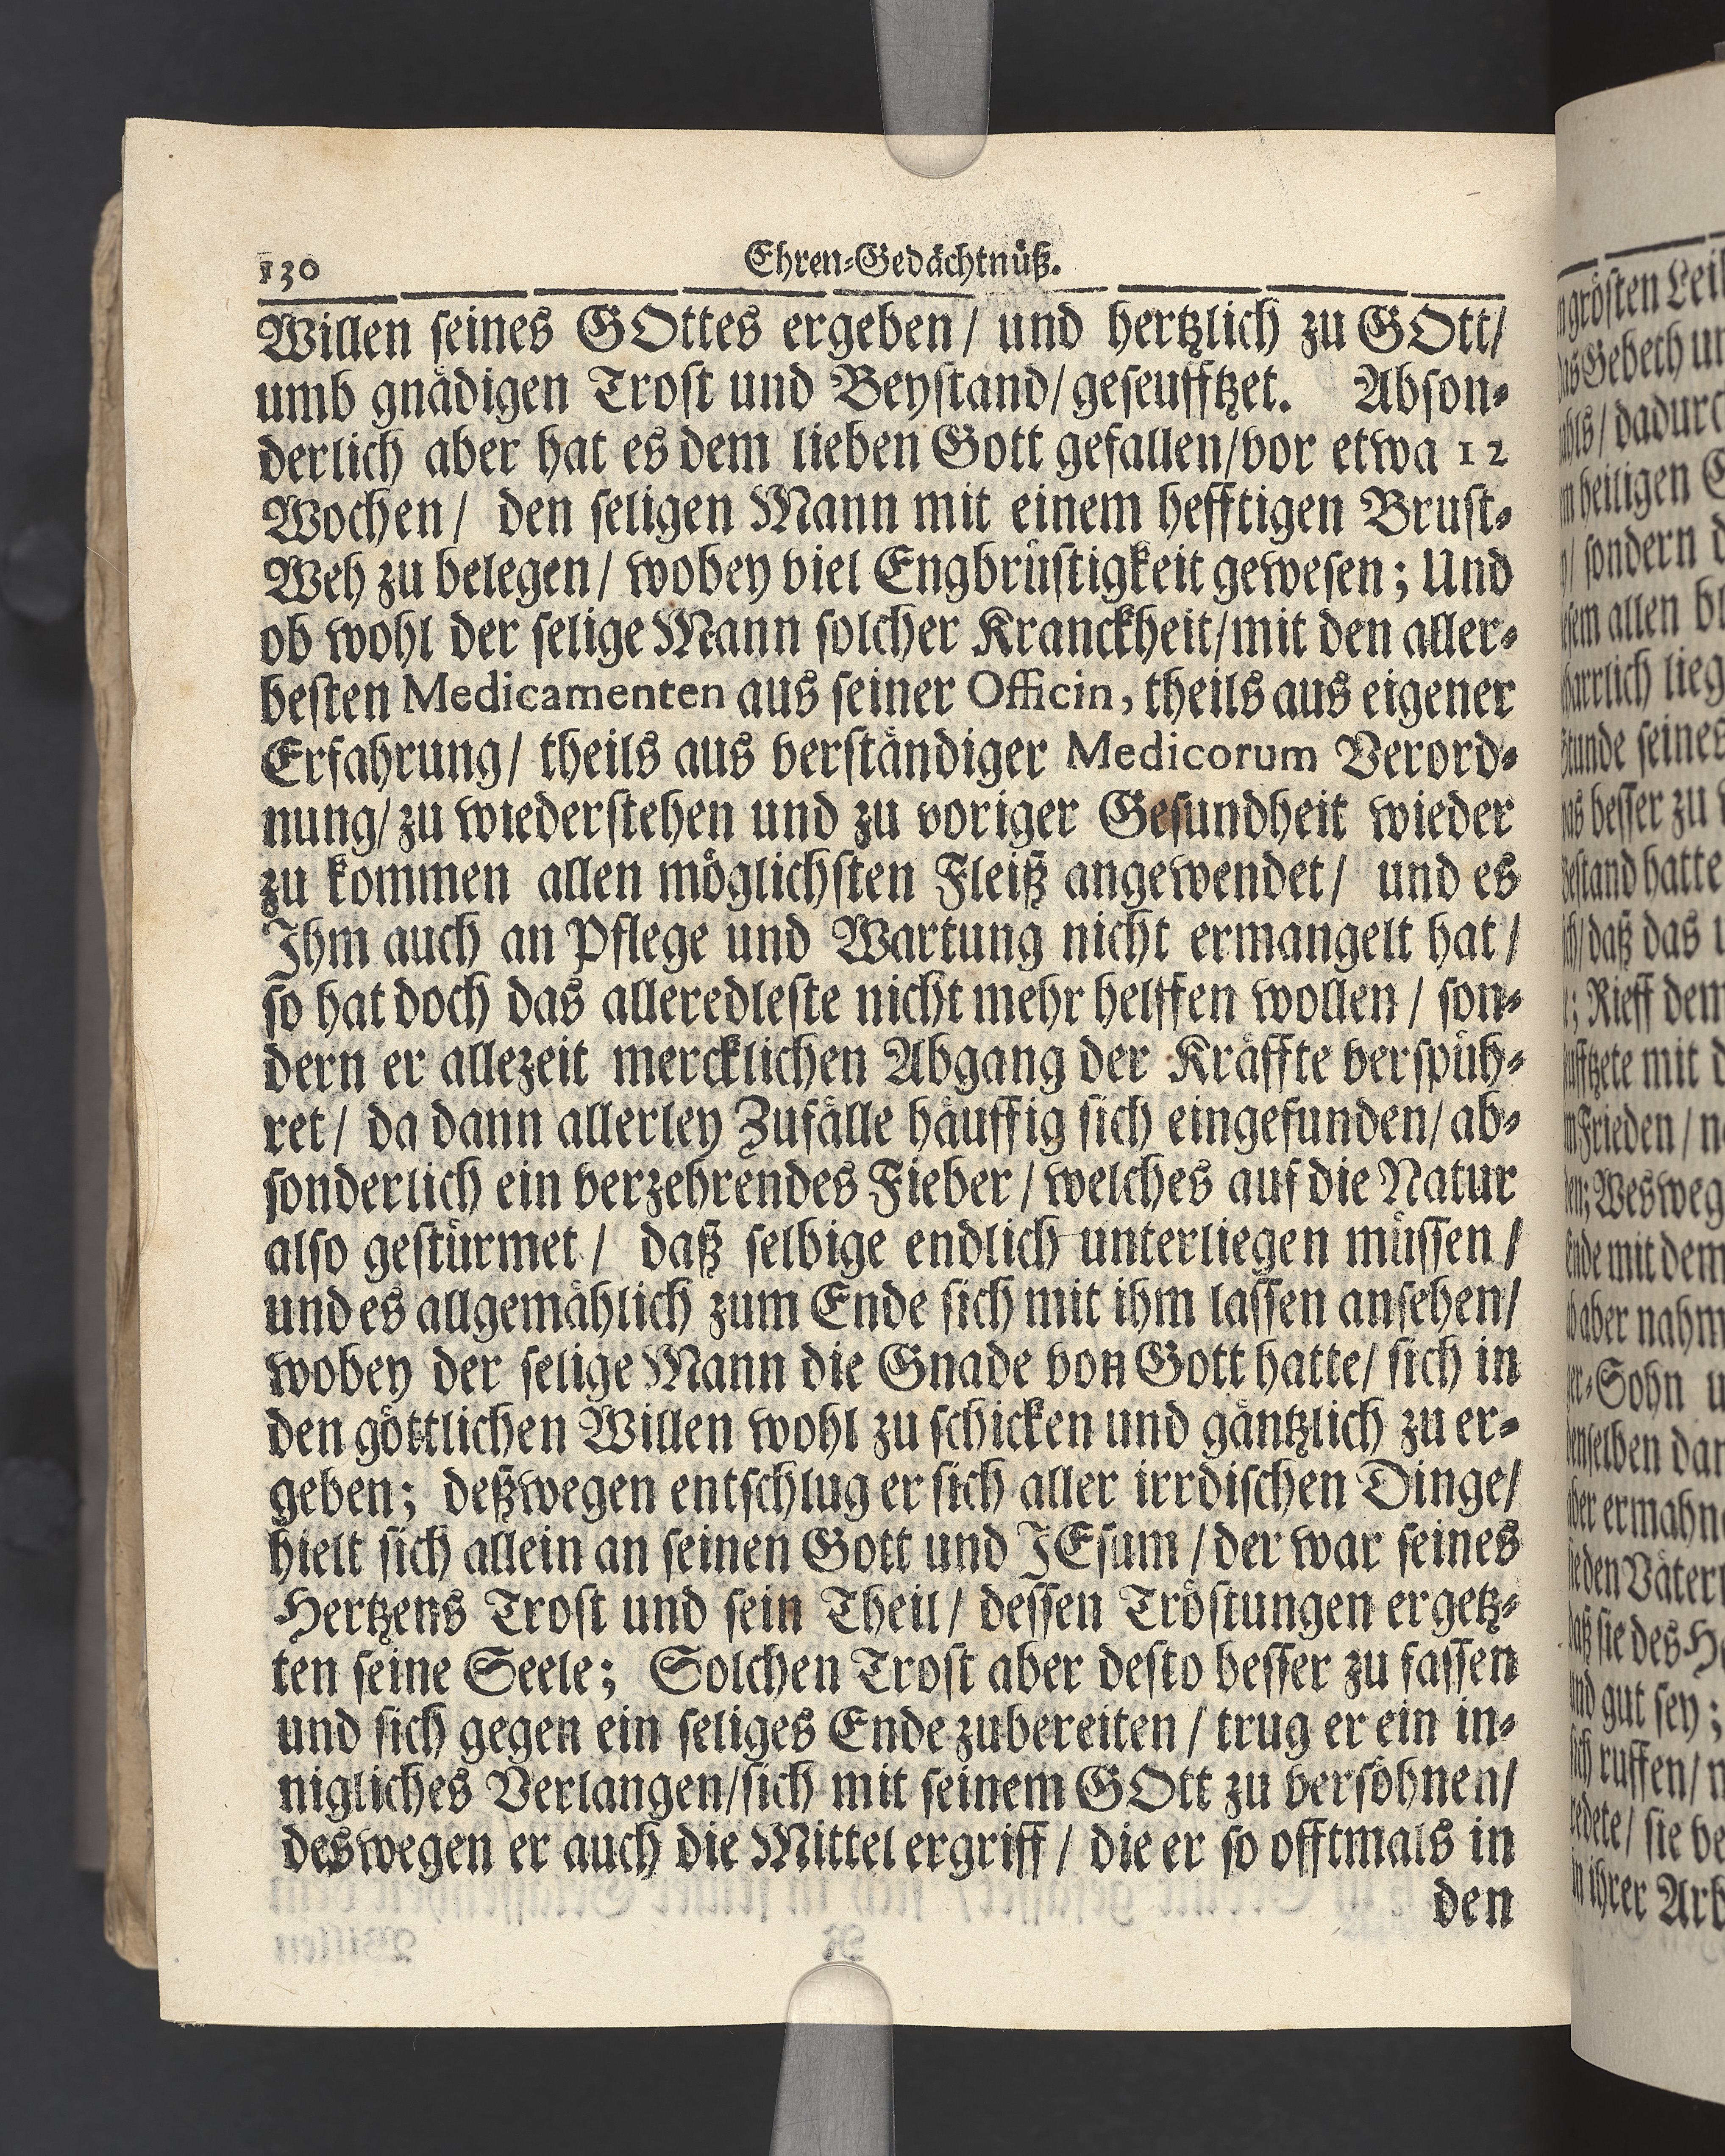 130 Ehren-Gedächtnüß.
Willen seines GOttes ergeben/ und hertzlich zu GOtt/
umb gnädigen Trost und Beystand/ geseufftzet. Abson-
derlich aber hat es dem lieben Gott gefallen/ vor etwa 12
Wochen/ den seligen Mann mit einem hefftigen Brust-
Weh zu belegen/ wobey viel Engbrüstigkeit gewesen; Und
ob wohl der selige Mann solcher Kranckheit/ mit den aller-
besten Medicamenten aus seiner Officin, theils aus eigener
Erfahrung/ theils aus verständiger Medicorum Verord-
nung/ zu wiederstehen und zu voriger Gesundheit wieder
zu kommen allen möglichsten Fleiß angewendet/ und es
Ihm auch an Pflege und Wartung nicht ermangelt hat/
so hat doch das alleredleste nicht mehr helffen wollen/ son-
dern er allezeit mercklichen Abgang der Kräffte verspüh-
ret/ da dann allerley Zufälle häuffig sich eingefunden/ ab-
sonderlich ein verzehrendes Fieber/ welches auf die Natur
also gestürmet/ daß selbige endlich unterliegen müssen/
und es allgemählich zum Ende sich mit ihm lassen ansehen/
wobey der selige Mann die Gnade von Gott hatte/ sich in
den göttlichen Willen wohl zu schicken und gäntzlich zu er-
geben; deßwegen entschlug er sich aller irrdischen Dinge/
hielt sich allein an seinen Gott und JEsum/ der war seines
Hertzens Trost und sein Theil/ dessen Tröstungen ergetz-
ten seine Seele; Solchen Trost aber desto besser zu fassen
und sich gegen ein seliges Ende zubereiten/ trug er ein in-
nigliches Verlangen/ sich mit seinem GOtt zu versöhnen/
deswegen er auch die Mittel ergriff/ die er so offtmals in
den